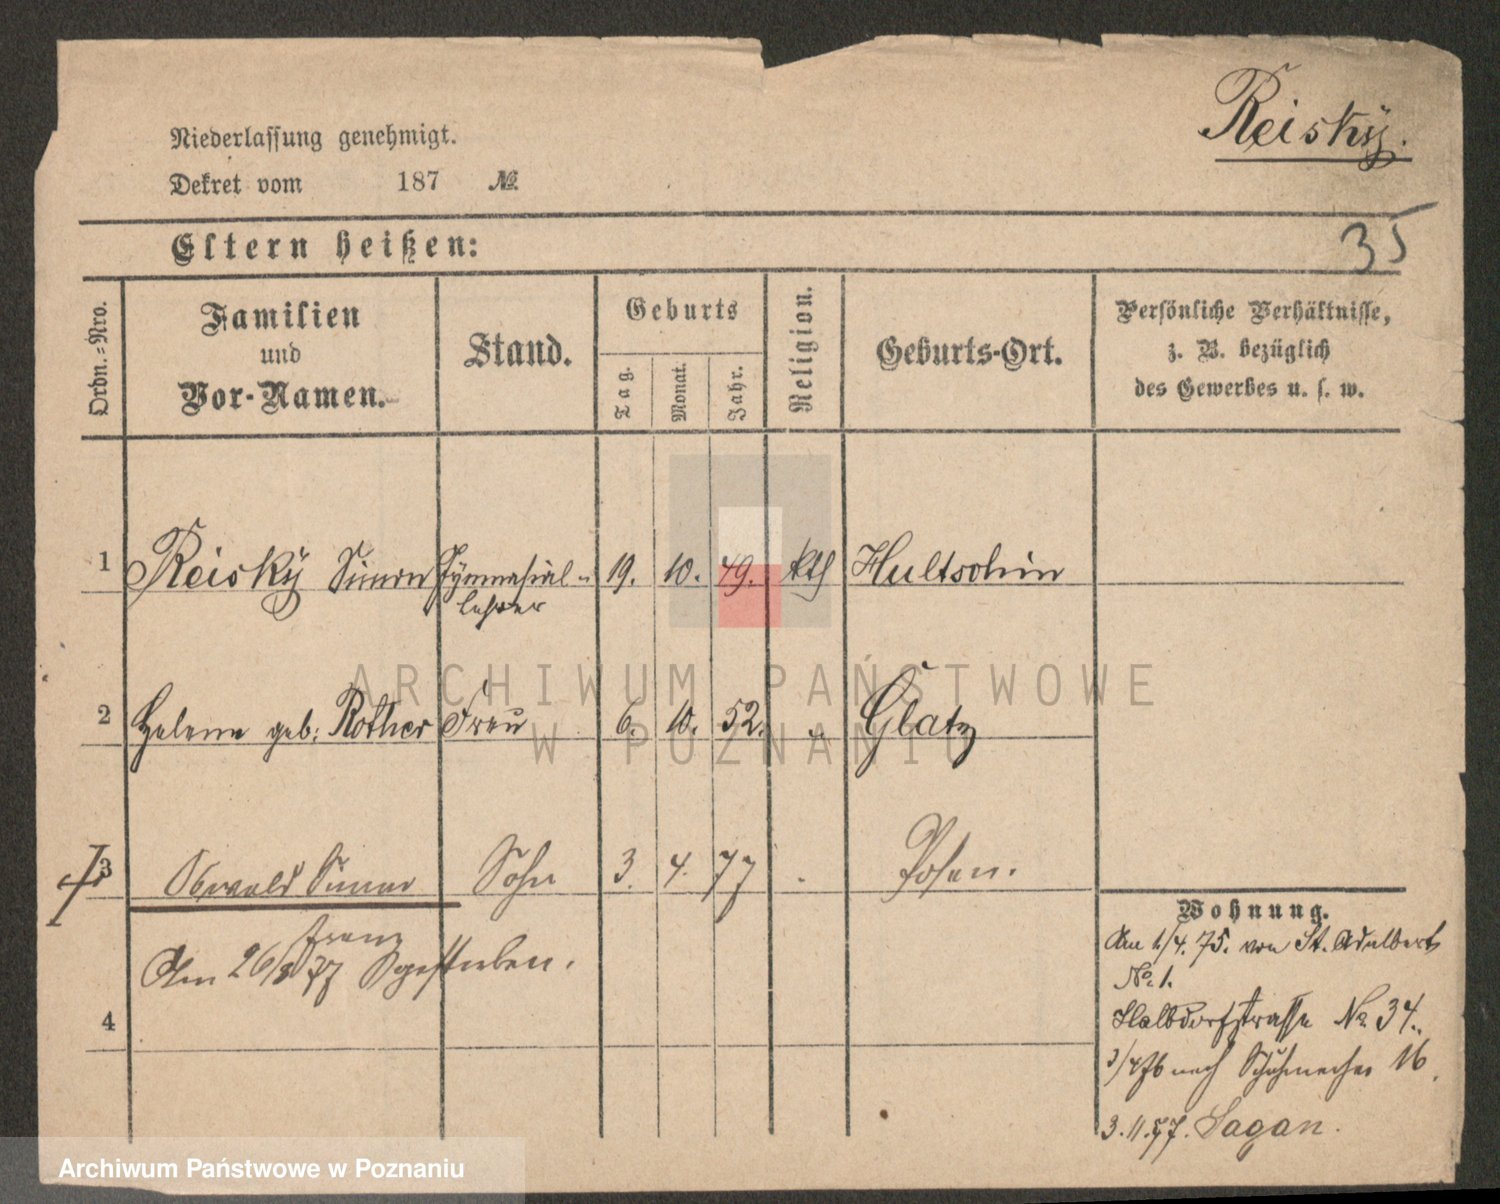 Reisky.
Niederlassung genehmigt.
Dekret vom 187 №
35
Eltern heißen:
Ordn.-Nro.
Familien
und
Vor-Namen.
Stand.
Geburts
Tag.
Monat.
Jahr.
Religion.
Geburts-Ort.
Persönliche Verhältnisse,
z. B. bezüglich
des Gewerbes u. s. w.
1 Reisky Simon Gymnasial- 19. 10. 49. kth Hultschin
lehrer
2 Helene geb. Rother Frau 6. 10. 52. " Glatz
3 Oswald Simon Sohn 3. 4. 77 . Posen.
Franz
Am 26/8 77 gestorben.
4
Wohnung.
Am 1/4. 75. von St. Adalbert
No. 1.
Halbdorfstrasse No. 34.
3/4 76 nach Schuhmacher 16
3. 11. 77. Sagan.
ARCHIWUM PAŃSTWOWE
W POZNANIU
Archiwum Państwowe w Poznaniu